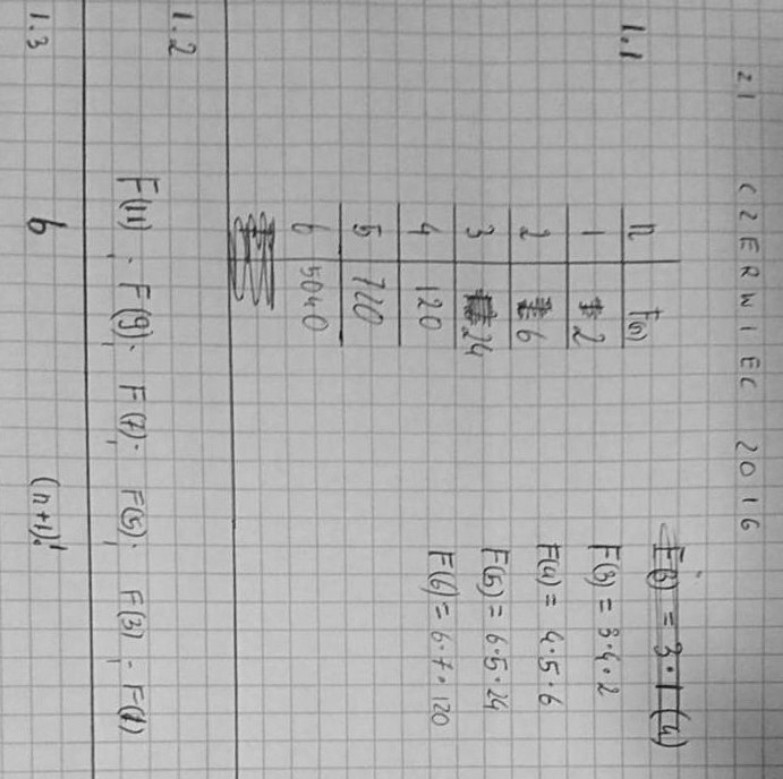 21 CZERWIEC 2016
F(3) = 3·1 (4)
1.1
n F(n)
1 2
2 6
3 24
4 120
5 720
6 5040
F(3) = 3·4·2
F(4) = 4·5·6
F(5) = 6·5·24
F(6) = 6·7·120
1.2
F(11) ; F(9); F(7); F(5); F(3) ; F(1)
1.3 6 (n+1)!